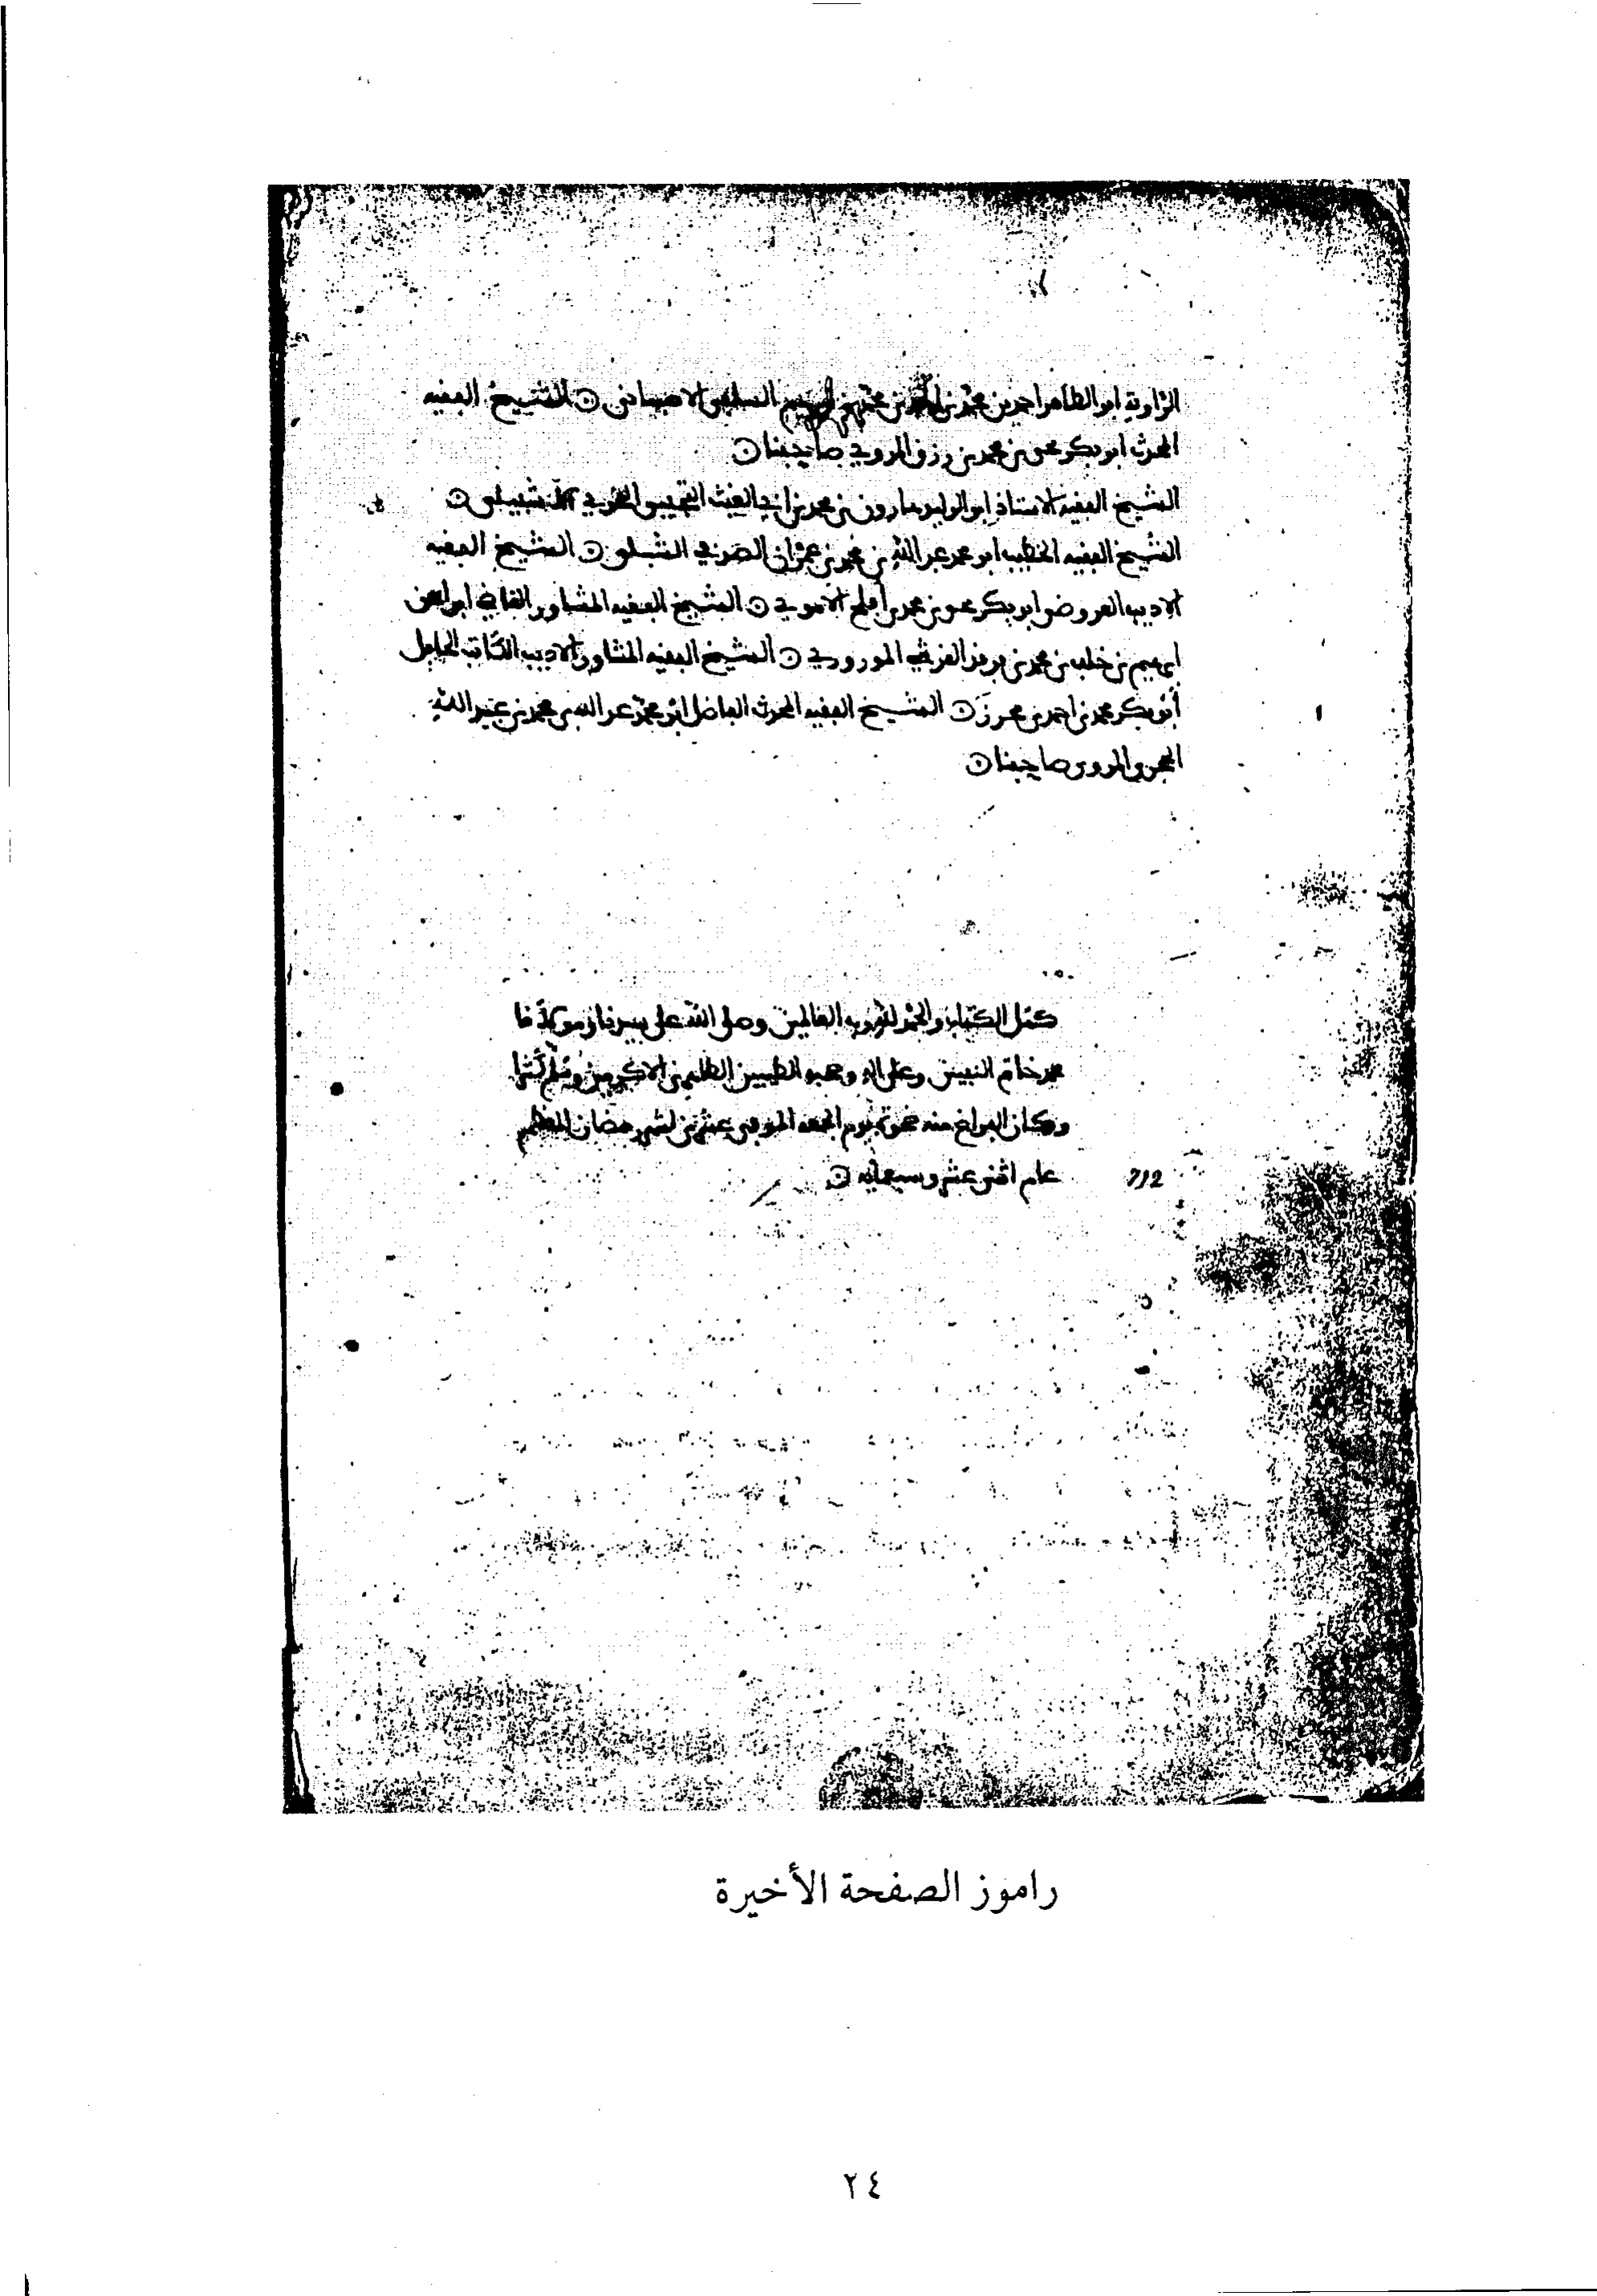 الراوية ابو الطاهر احمد بن محمد بن احمد بن محمد بن ابرهيم السلفي الاصبهاني الشيخ الفقيه
المحدث ابو بكر يحيى بن محمد بن رزق المروي صاحبنا
الشيخ الفقيه الاستاذ ابو الوليد هارون بن محمد بن ابي الغيث التجيبي
الشيخ الفقيه الخطيب ابو محمد عبد الله بن محمد بن عمران الصدفي الشيخ الفقيه
الاديب العروضي ابو بكر يحيى بن محمد بن افلح الاموي الشيخ الفقيه المشاور القاضي ابو اسحق
ابرهيم بن خلف بن محمد بن القرشي الموروري الشيخ الفقيه المشاور الاديب الكاتب الجليل
أبو بكر محمد بن احمد بن محرز الشيخ الفقيه المحدث الفاضل ابو محمد عبد الله بن محمد بن عبيد الله
الحجري المروي صاحبنا
كمل الكتاب والحمد لله رب العالمين وصلى الله على سيدنا ومولانا
محمد خاتم النبيين وعلى اله وصحبه الطيبين الطاهرين الاكرمين وسلم كثيرا
وكان الفراغ منه ضحوة يوم الجمعة الموفي عشرين لشهر رمضان المعظم
عام اثني عشر وسبعماية
712
راموز الصفحة الأخيرة
٢٤